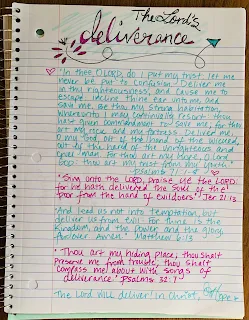 The Lord's
deliverance
"In thee O LORD, do I put my trust: let me
never be put to confusion. Deliver me
in thy righteousness, and cause me to
escape: incline thine ear unto me, and
save me. Be thou my strong habitation,
whereunto I may continually resort: thou
hast given commandment to save me; for thou
art my rock and my fortress. Deliver me,
O my God, out of the hand of the wicked,
out of the hand of the unrighteous and
cruel man. For thou art my hope, O Lord
God: thou art my trust from my youth."
Psalms 71:1-5
"Sing unto the LORD, praise ye the LORD:
for he hath delivered the soul of the
poor from the hand of evildoers." Jer 20:13
And lead us not into temptation, but
deliver us from evil: For thine is the
kingdom, and the power, and the glory,
forever. Amen." Matthew 6:13
"Thou art my hiding place; thou shalt
preserve me from trouble; thou shalt
compass me about with songs of
deliverance." Psalms 32:7
The Lord will deliver! In Christ,